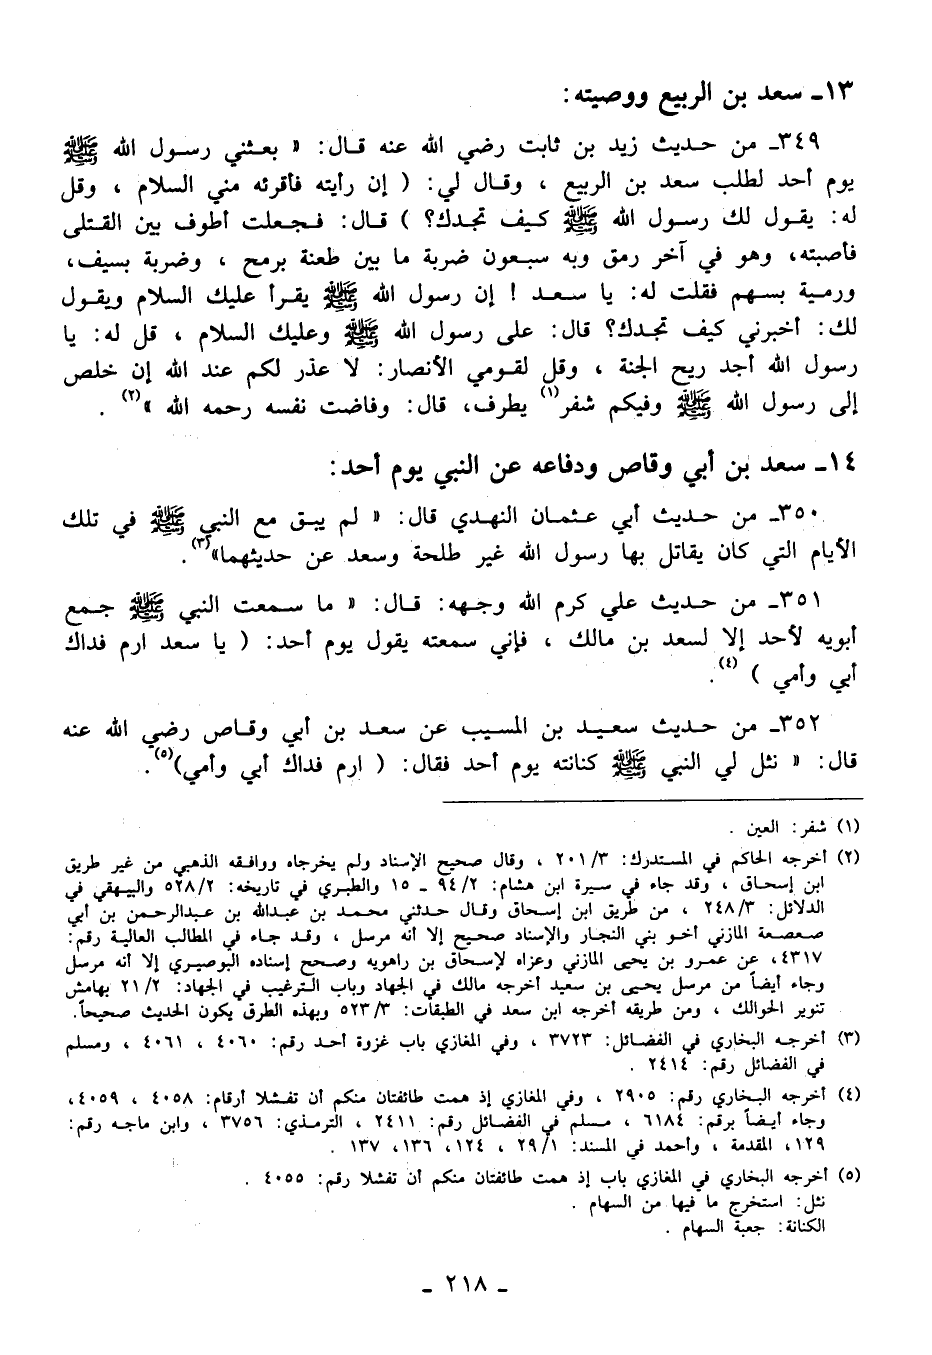 ١٣ـ سعد بن الربيع ووصيته:
٣٤٩ـ من حديث زيد بن ثابت رضي الله عنه قال: « بعثني رسول الله ﷺ
يوم أحد لطلب سعد بن الربيع ، وقال لي: ( إن رأيته فأقرئه مني السلام ، وقل
له: يقول لك رسول الله ﷺ كيف تجدك؟ ) قال: فجعلت أطوف بين القتلى
فأصبته، وهو في آخر رمق وبه سبعون ضربة ما بين طعنة برمح ، وضربة بسيف،
ورمية بسهم فقلت له: يا سعد ! إن رسول الله ﷺ يقرأ عليك السلام ويقول
لك: أخبرني كيف تجدك؟ قال: على رسول الله ﷺ وعليك السلام ، قل له: يا
رسول الله أجد ريح الجنة ، وقل لقومي الأنصار: لا عذر لكم عند الله إن خلص
إلى رسول الله ﷺ وفيكم شفر(١) يطرف، قال: وفاضت نفسه رحمه الله »(٢) .
١٤ـ سعد بن أبي وقاص ودفاعه عن النبي يوم أحد:
٣٥٠ـ من حديث أبي عثمان النهدي قال: « لم يبق مع النبي ﷺ في تلك
الأيام التي كان يقاتل بها رسول الله غير طلحة وسعد عن حديثهما»(٣).
٣٥١ـ من حديث علي كرم الله وجهه: قال: « ما سمعت النبي ﷺ جمع
أبويه لأحد إلا لسعد بن مالك ، فإني سمعته يقول يوم أحد: ( يا سعد ارم فداك
أبي وأمي ) (٤).
٣٥٢ـ من حديث سعيد بن المسيب عن سعد بن أبي وقاص رضي الله عنه
قال: « نثل لي النبي ﷺ كنانته يوم أحد فقال: ( ارم فداك أبي وأمي)(٥).
(١) شفر: العين .
(٢) أخرجه الحاكم في المستدرك: ٢٠١/٣ ، وقال صحيح الإسناد ولم يخرجاه ووافقه الذهبي من غير طريق
ابن إسحاق ، وقد جاء في سيرة ابن هشام: ٩٤/٢ ـ ١٥ والطبري في تاريخه: ٥٢٨/٢ والبيهقي في
الدلائل: ٢٤٨/٣ ، من طريق ابن إسحاق وقال حدثني محمد بن عبدالله بن عبدالرحمن بن أبي
صعصعة المازني أخو بني النجار والإسناد صحيح إلا أنه مرسل ، وقد جاء في المطالب العالية رقم:
٤٣١٧، عن عمرو بن يحيى المازني وعزاه لإسحاق بن راهويه وصحح إسناده البوصيري إلا أنه مرسل
وجاء أيضاً من مرسل يحيى بن سعيد أخرجه مالك في الجهاد وباب الترغيب في الجهاد: ٢١/٢ بهامش
تنوير الحوالك ، ومن طريقه أخرجه ابن سعد في الطبقات: ٥٢٣/٣ وبهذه الطرق يكون الحديث صحيحاً.
(٣) أخرجه البخاري في الفضائل: ٣٧٢٣ ، وفي المغازي باب غزوة أحد رقم: ٤٠٦٠ ، ٤٠٦١ ، ومسلم
في الفضائل رقم: ٢٤١٤ .
(٤) أخرجه البخاري رقم: ٢٩٠٥ ، وفي المغازي إذ همت طائفتان منكم أن تفشلا أرقام: ٤٠٥٨ ، ٤٠٥٩،
وجاء أيضاً برقم: ٦١٨٤ ، مسلم في الفضائل رقم: ٢٤١١ ، الترمذي: ٣٧٥٦ ، وابن ماجه رقم:
١٢٩، المقدمة ، وأحمد في المسند: ٢٩/١ ، ١٢٤، ١٣٦، ١٣٧ .
(٥) أخرجه البخاري في المغازي باب إذ همت طائفتان منكم أن تفشلا رقم: ٤٠٥٥ .
نثل: استخرج ما فيها من السهام .
الكنانة: جعبة السهام .
ـ ٢١٨ ـ